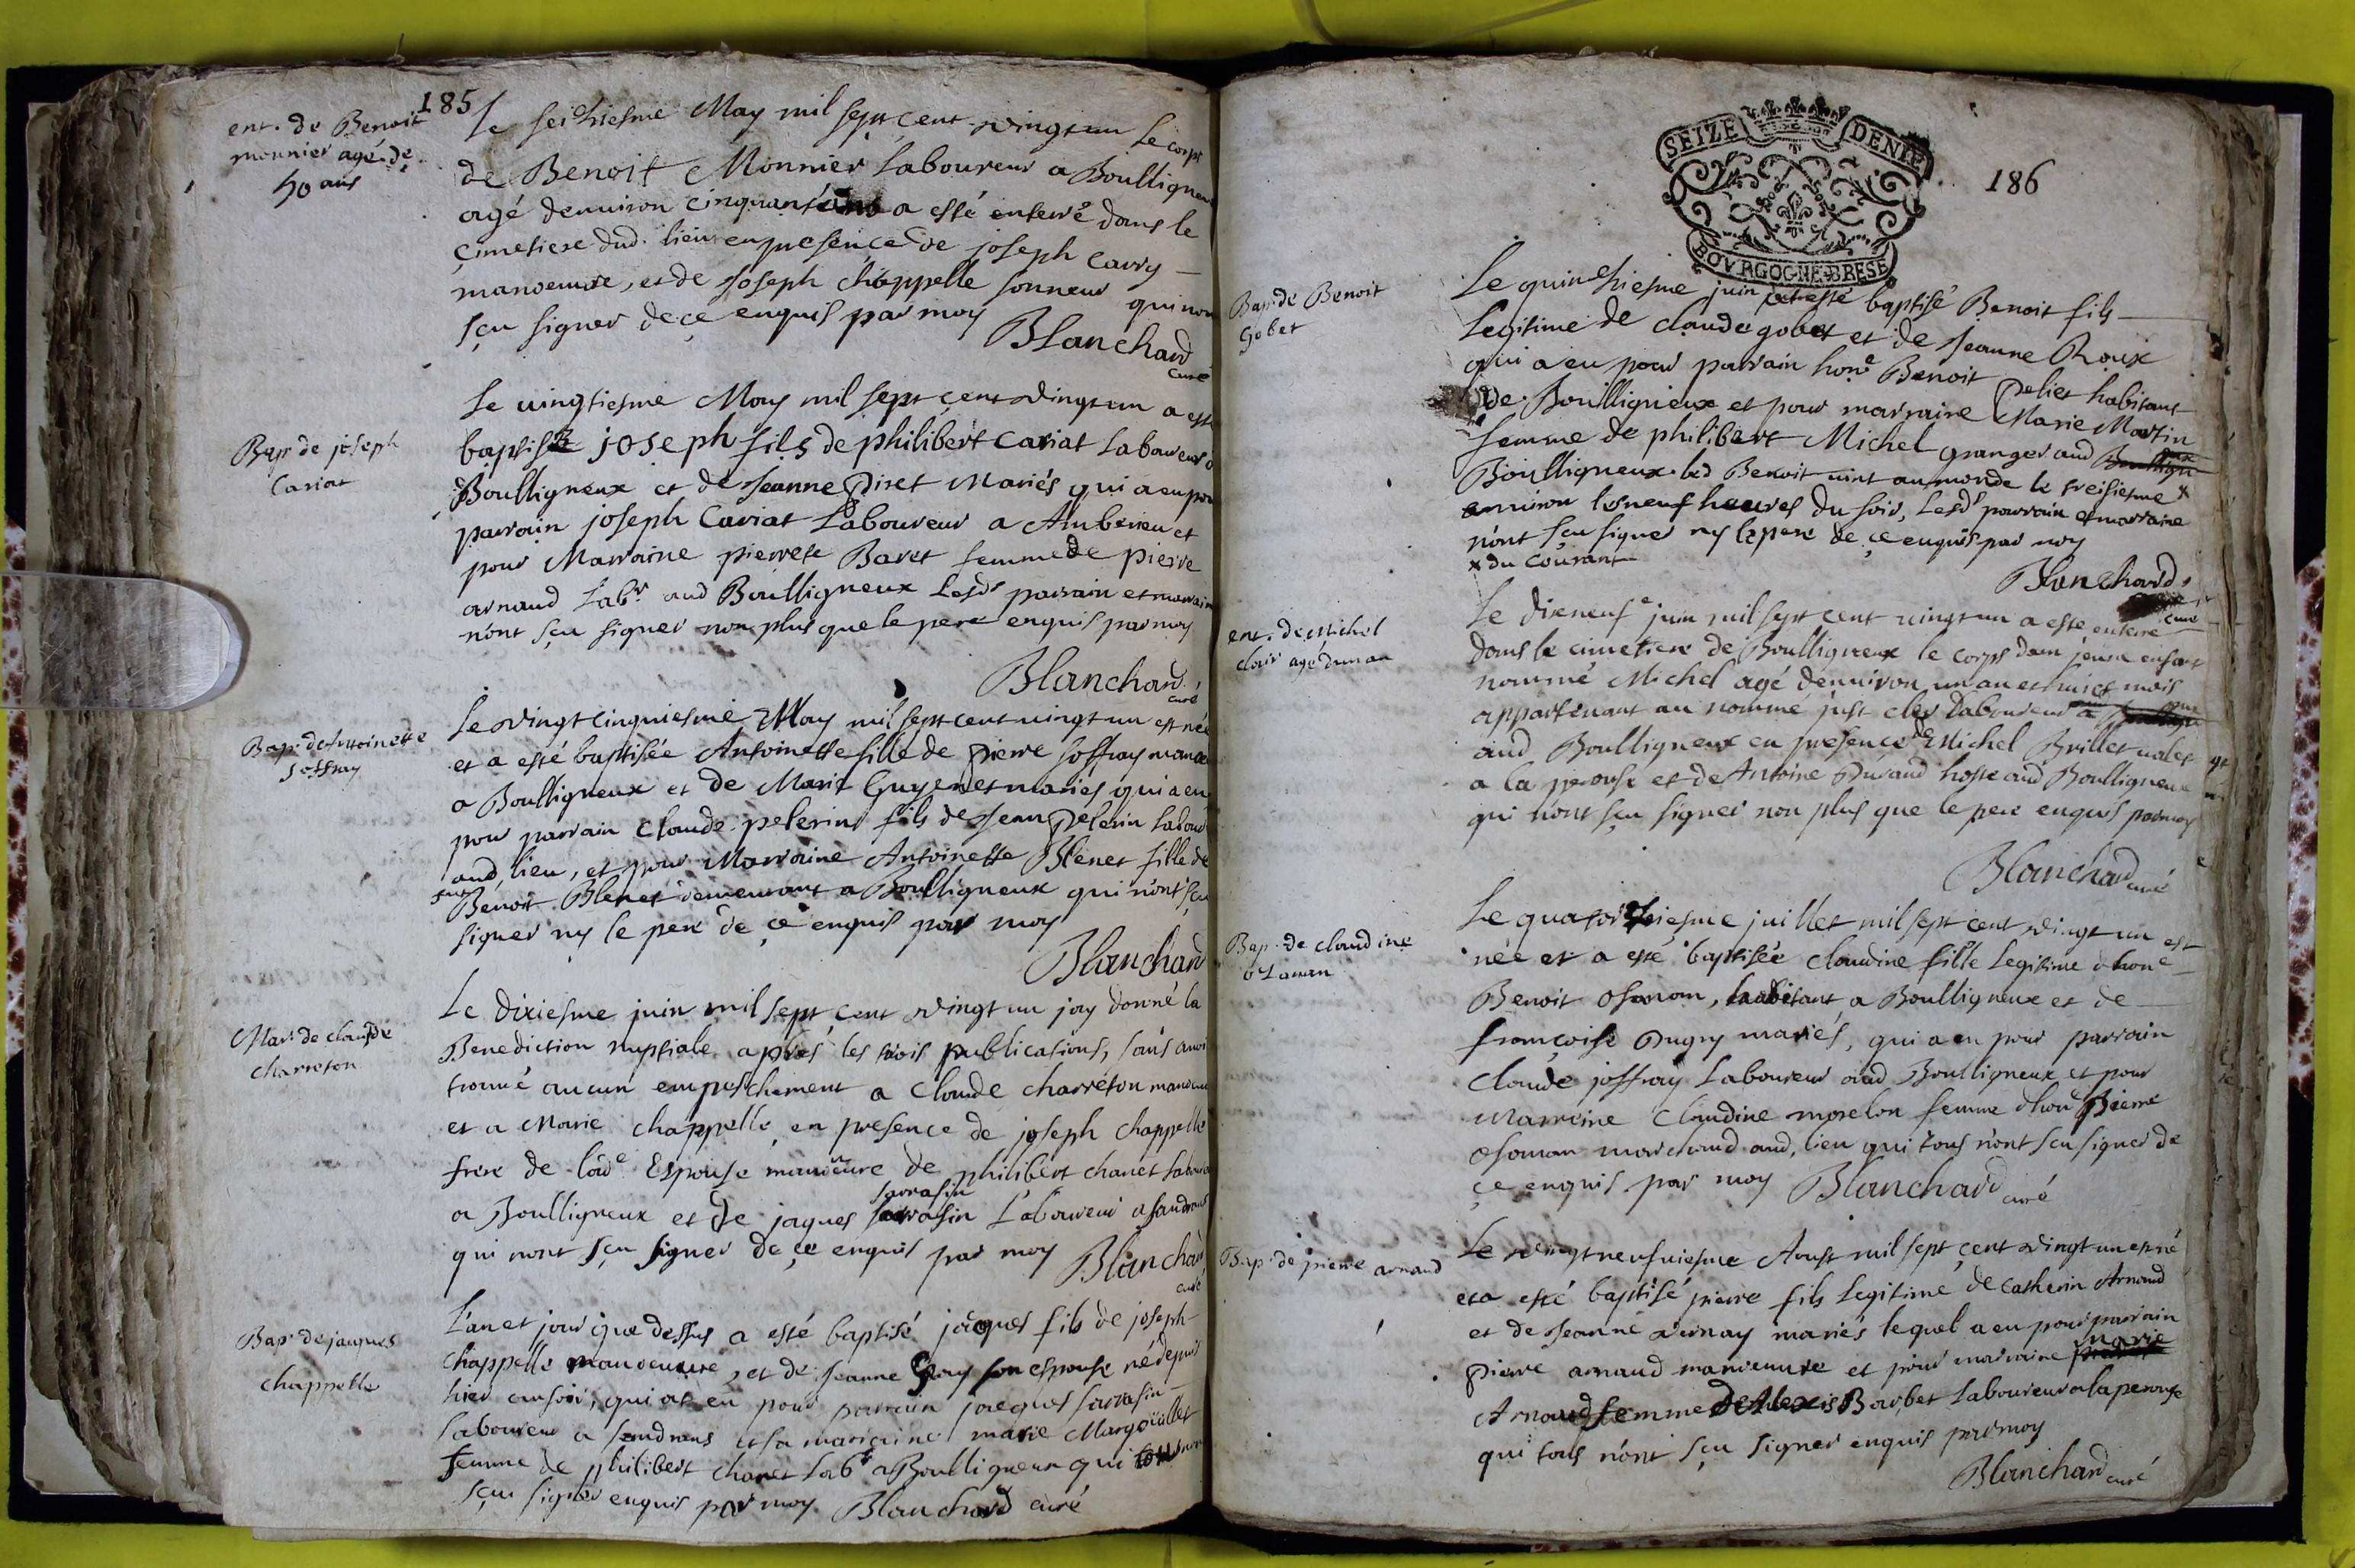 185
ent. de Benoit
monnier agé de
50 ans
Le seiziesme May mil sept cent vingt un le corps
de Benoit Monnier Laboureur a Boulligneux
agé denuiron cinquant ans a esté enterré dans le
cimetiere dud. lieu en presence de joseph Carry
manoeuure, et de Joseph chappelle sonneur qui nont
sçu signer de çe enquis par moy
Blanchard
curé
Bap. de joseph
Cariat
Le uingtiesme May mil sept cent vingt un a esté
baptisé joseph fils de philibert Cariat Laboureur a
Boulligneux et de Jeanne Piret Mariés qui a eu pour
parrain joseph Cariat Laboureur a Amberieu et
pour Marraine pierrete Baret femme de pierre
arnaud Labr aud Boulligneux Lesds parrain et marraine
n'ont sçu signer non plus que le pere enquis par moy
Blanchard
curé
Bap. de Antoinette
joffray
Le vingt cinquiesme May mil sept cent vingt un est née
et a esté baptisée Antoinette fille de pierre joffray manoeu
a Boulligneux et de Marie Guyenet mariés qui a eu
pour parrain Claude pelerin fils de Jean pelerin Labour
aud, lieu, et pour Marraine Antoinette Blenet fille de
feu Benoit Blenet demeurant a Boulligneux qui n'ont sçu
signer ny le pere de çe enquis par moy
Blanchard
Mar. de claude
charreton
Le dixiesme juin mil sept cent vingt un jay donné la
Benediction nuptiale apres les trois publications, sans auoir
trouué aucun empeschement a Claude charréton manoeuu
et a Marie chappelle en presence de joseph chappelle
frere de lade Espouse manoeuure de philibert chanet Laboureur
sarrasin
a Boulligneux et de jaques sarrasin Laboureur a sandrans
qui nont sçu signer de çe enquis par moy Blanchard
curé
Bap. de jacques
chappelle
L'an et jour que dessus a esté baptisé jacques fils de joseph
chappelle manoeuure, et de Jeanne son espouse né depuis
hier au soir, qui at eu pour parrain jacques sarrasin
laboureur a sandrans et sa marraine marie Margoüillet
femme de philibert chanet Labr a Boulligneux qui tous nont
sçu signer enquis par moy Blanchard curé
SEIZE DENIE
BOVRGOGNE·BRESE
186
Bap. de Benoit
Gobet
Le quinziesme juin a esté baptisé Benoit fils
Legitime de claude gobet et de Jeanne Roux
qui a eu pour parrain hone Benoit Pelier habitant
de Boulligneux et pour marraine Marie Martin
femme de philibert Michel granger aud
Boulligneux led Benoit uint au monde le treisiesme x
enuiron les neuf heures du soir, Lesds parrain et marraine
n'ont sçu signer ny le pere de çe enquis par moy
x du Courant
Blanchard
curé
ent. de Michel
clair agé dun an
Le dixneufe juin mil sept cent vingt un a esté enterré
dans le cimetiere de Boulligneux le corps dun jeune enfant
nommé Michel agé denuiron un an et huict mois
appartenant au nommé just cler Laboureur a
aud Boulligneux en presence de Michel Brillet ualet
a la perouse et de Antoine Durand hoste aud Boulligneux
qui nont sçu signer non plus que le pere enquis par moy
Blanchard curé
Bap. de claudine
oZanan
Le quatorziesme juillet mil sept cent vingt un est
née et a esté baptisée claudine fille Legitime d hone
Benoit Osanan, habitant a Boulligneux et de
françoise Dugny mariés, qui a eu pour parrain
Claude joffray Laboureur aud Boulligneux et pour
Marraine Claudine morelon femme d hone Pierre
Osanan marchand aud, lieu qui tous n'ont sçu signer de
çe enquis par moy Blanchard curé
Bap. de pierre arnaud
Le vingt neufuiesme Aoust mil sept cent vingt un est né
et a esté baptisé pierre fils Legitime de Catherin Arnaud
et de Jeanne mariés lequel a eu pour parrain
marie
Pierre arnaud manoeuure et pour marraine
Arnaud femme de Alexis Barbet Laboureur a la perouse
qui tous n'ont sçu signer enquis par moy
Blanchard curé